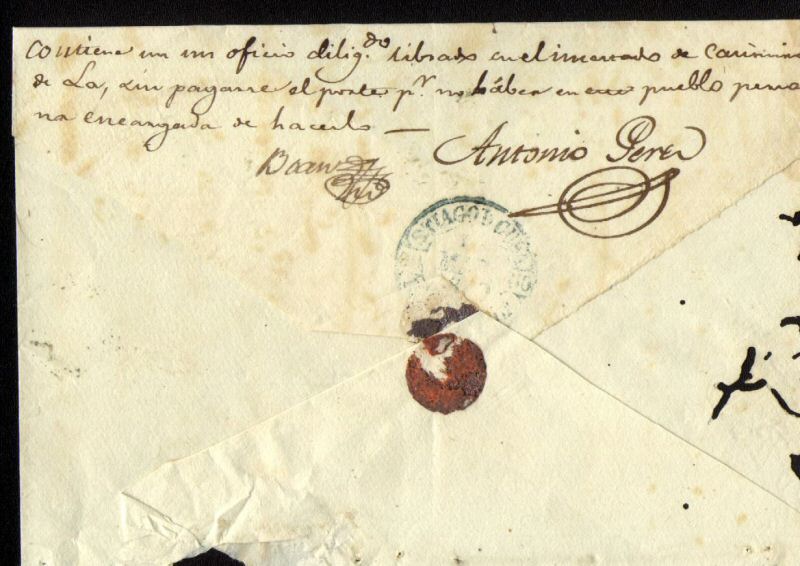 Contiene un un oficio dilig.do librado en el mercado de
de La, sin pagarse el porte p.r no háber en ese pueblo perso
na encargada de hacerlo —
Antonio Perez
STIAGO